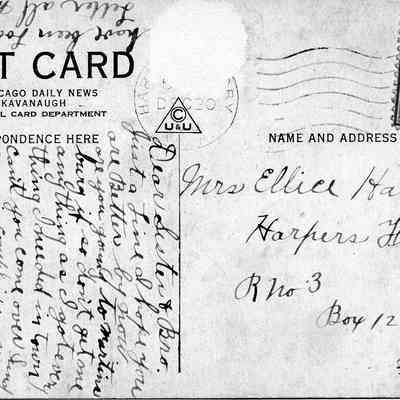 Letter all
have been
T CARD
CAGO DAILY NEWS
KAVANAUGH
L CARD DEPARTMENT
PONDENCE HERE
NAME AND ADDRESS
DEC 20
C
U&U
Mrs Ellice Ha
Harpers
R No 3
Box 12
Dear Sister & Bro.
Just a line I hope you
are Better by now
are you going to Martins
burg if so dont get me
anything as I got every
thing I needed in town
Can't you come over